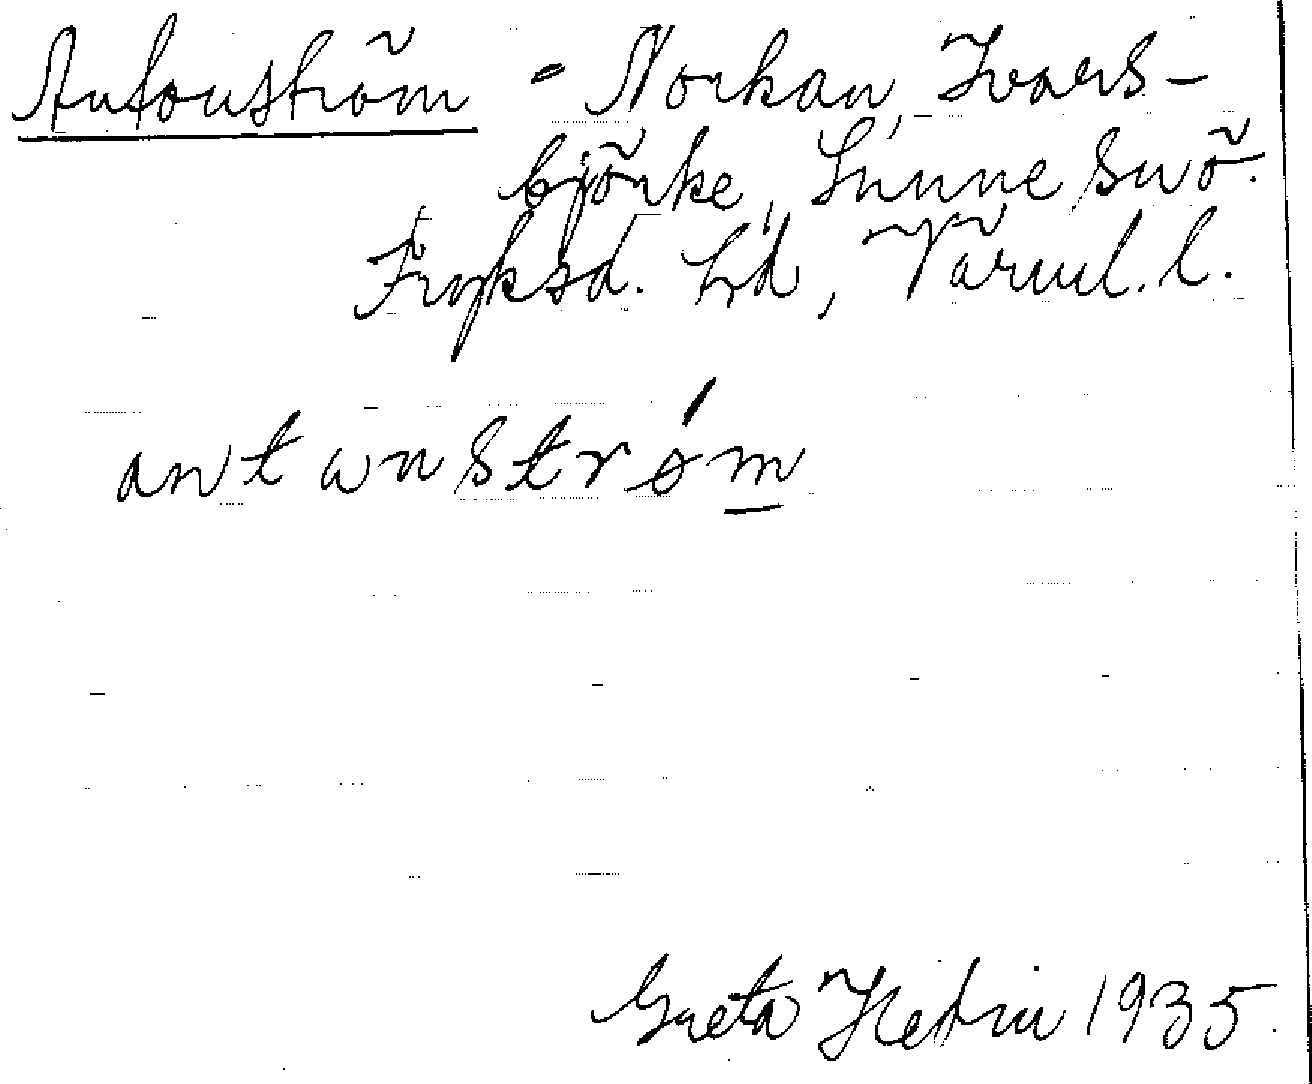 Antonström - Norkan, Ivars-
björke, Sunne snö.
Fryksd. hd, Värml. l.
antωnstrǿm
Greta Hedin 1935